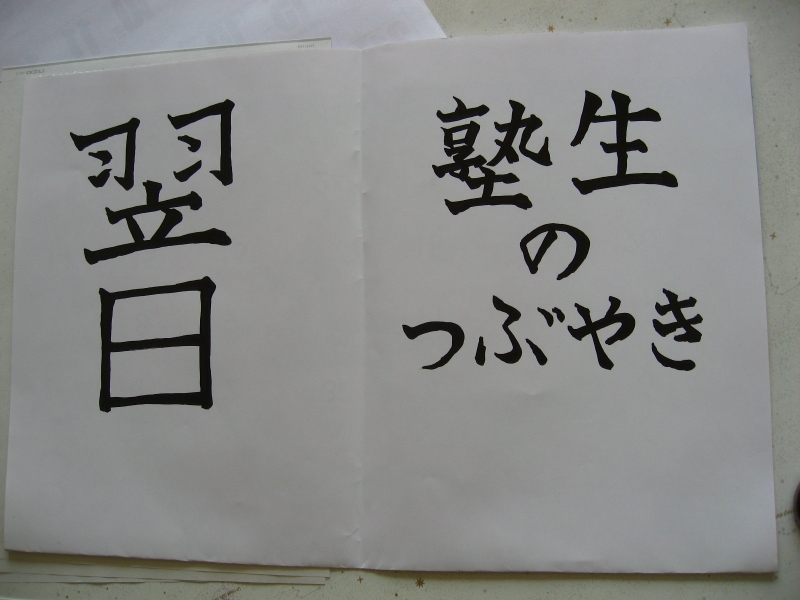 翌
日
塾生
の
つぶやき